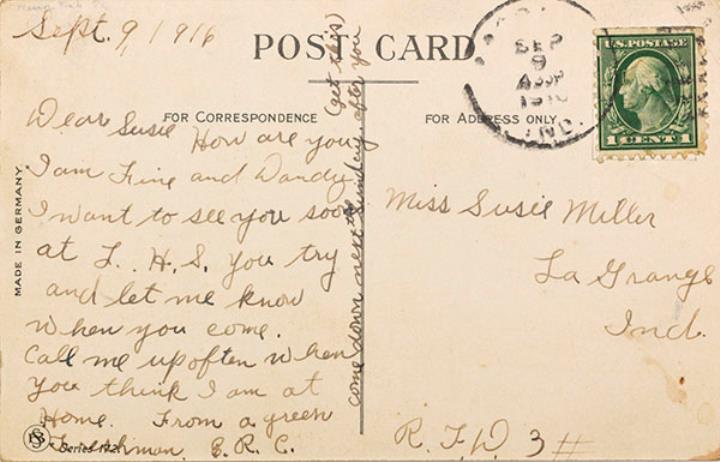 Sept. 9, 1916
POST CARD
SEP
9
1916
IND.
U.S. POSTAGE
1 CENT 1
FOR CORRESPONDENCE
FOR ADDRESS ONLY
Dear Susie How are you
I am Fine and Dandy
I want to see you soon
at L. H. S. you try
and let me know
when you come.
Call me up often when
you think I am at
Home. From a green
Freshman E. R. C.
come down next Sunday after you
get this
Miss Susie Miller
La Grange
Ind.
R. F. D. 3 #
MADE IN GERMANY
Series